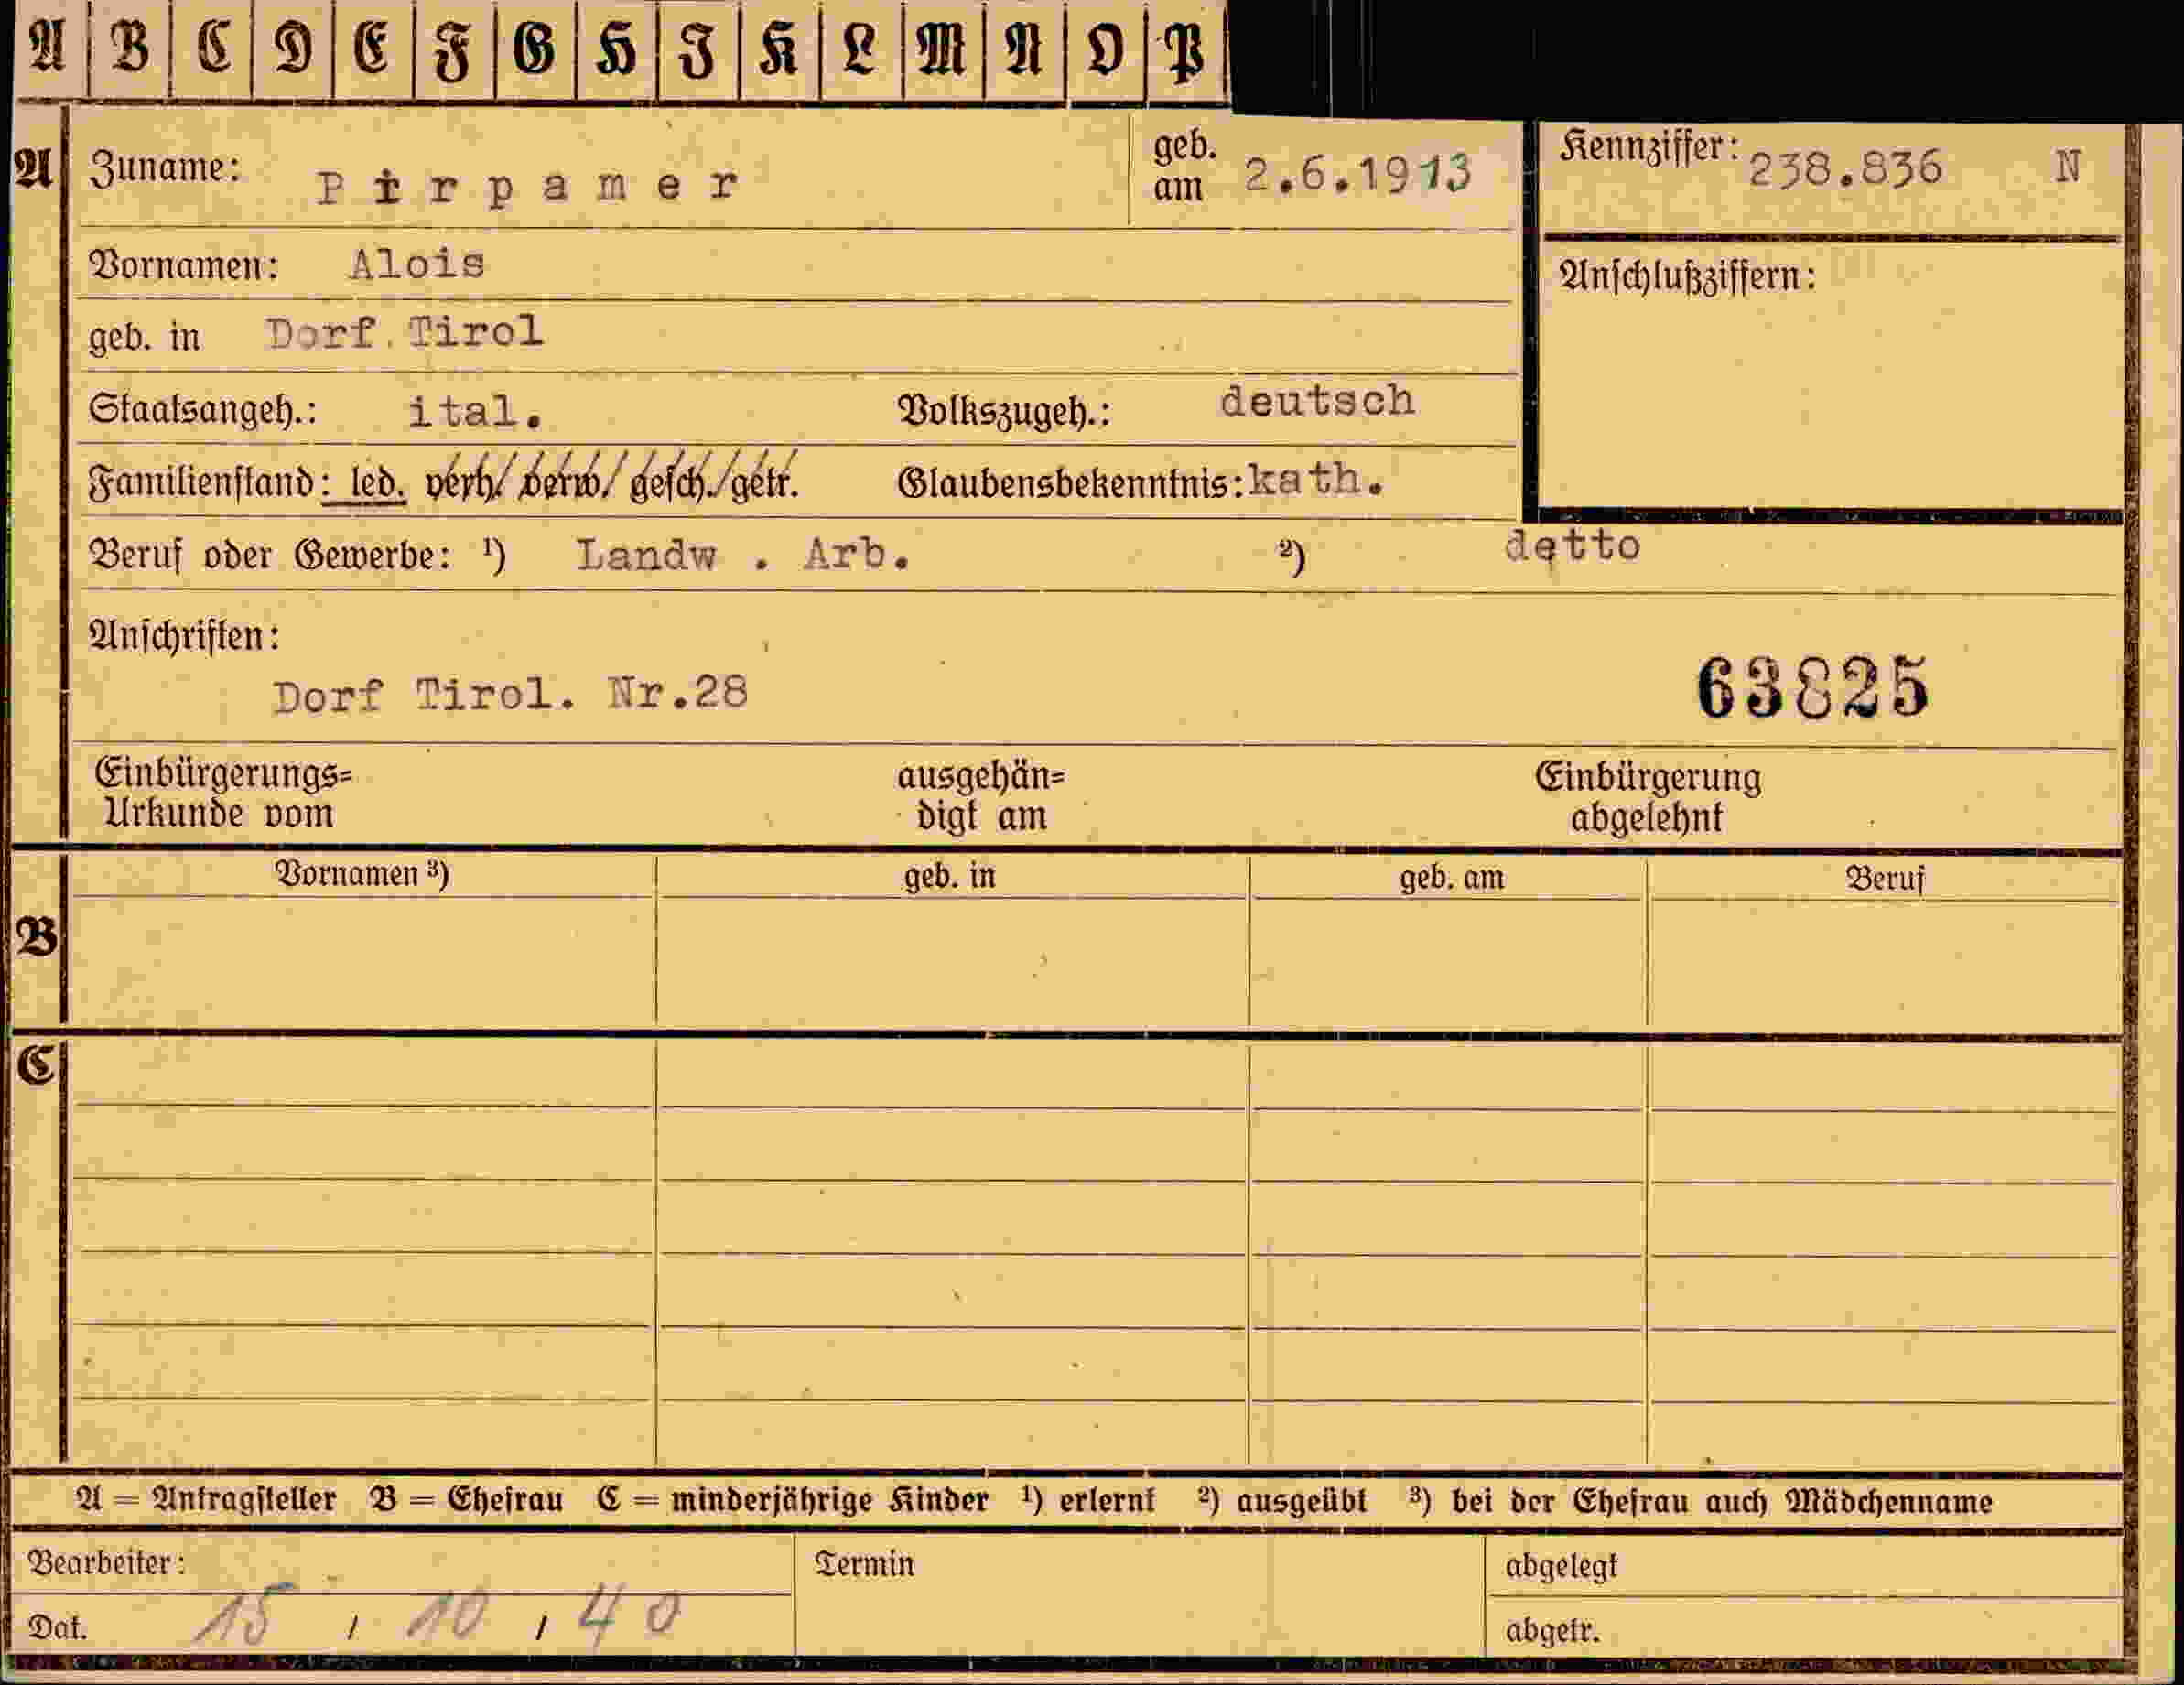 A B C D E F G H I K L M N O P
A Zuname: Pirpamer geb. am 2.6.1913 Kennziffer: 238.836 N
Vornamen: Alois Anschlußziffern:
geb. in Dorf Tirol
Staatsangeh.: ital. Volkszugeh.: deutsch
Familienstand: led. verh./verw./gesch./getr. Glaubensbekenntnis: kath.
Beruf oder Gewerbe: ¹) Landw . Arb. ²) detto
Anschriften:
Dorf Tirol. Nr.28 63825
Einbürgerungs= ausgehän= Einbürgerung
Urkunde vom digt am abgelehnt
Vornamen ³) geb. in geb. am Beruf
B
C
A = Antragsteller B = Ehefrau C = minderjährige Kinder ¹) erlernt ²) ausgeübt ³) bei der Ehefrau auch Mädchenname
Bearbeiter: Termin abgelegt
Dat. 15 / 10 / 40 abgetr.